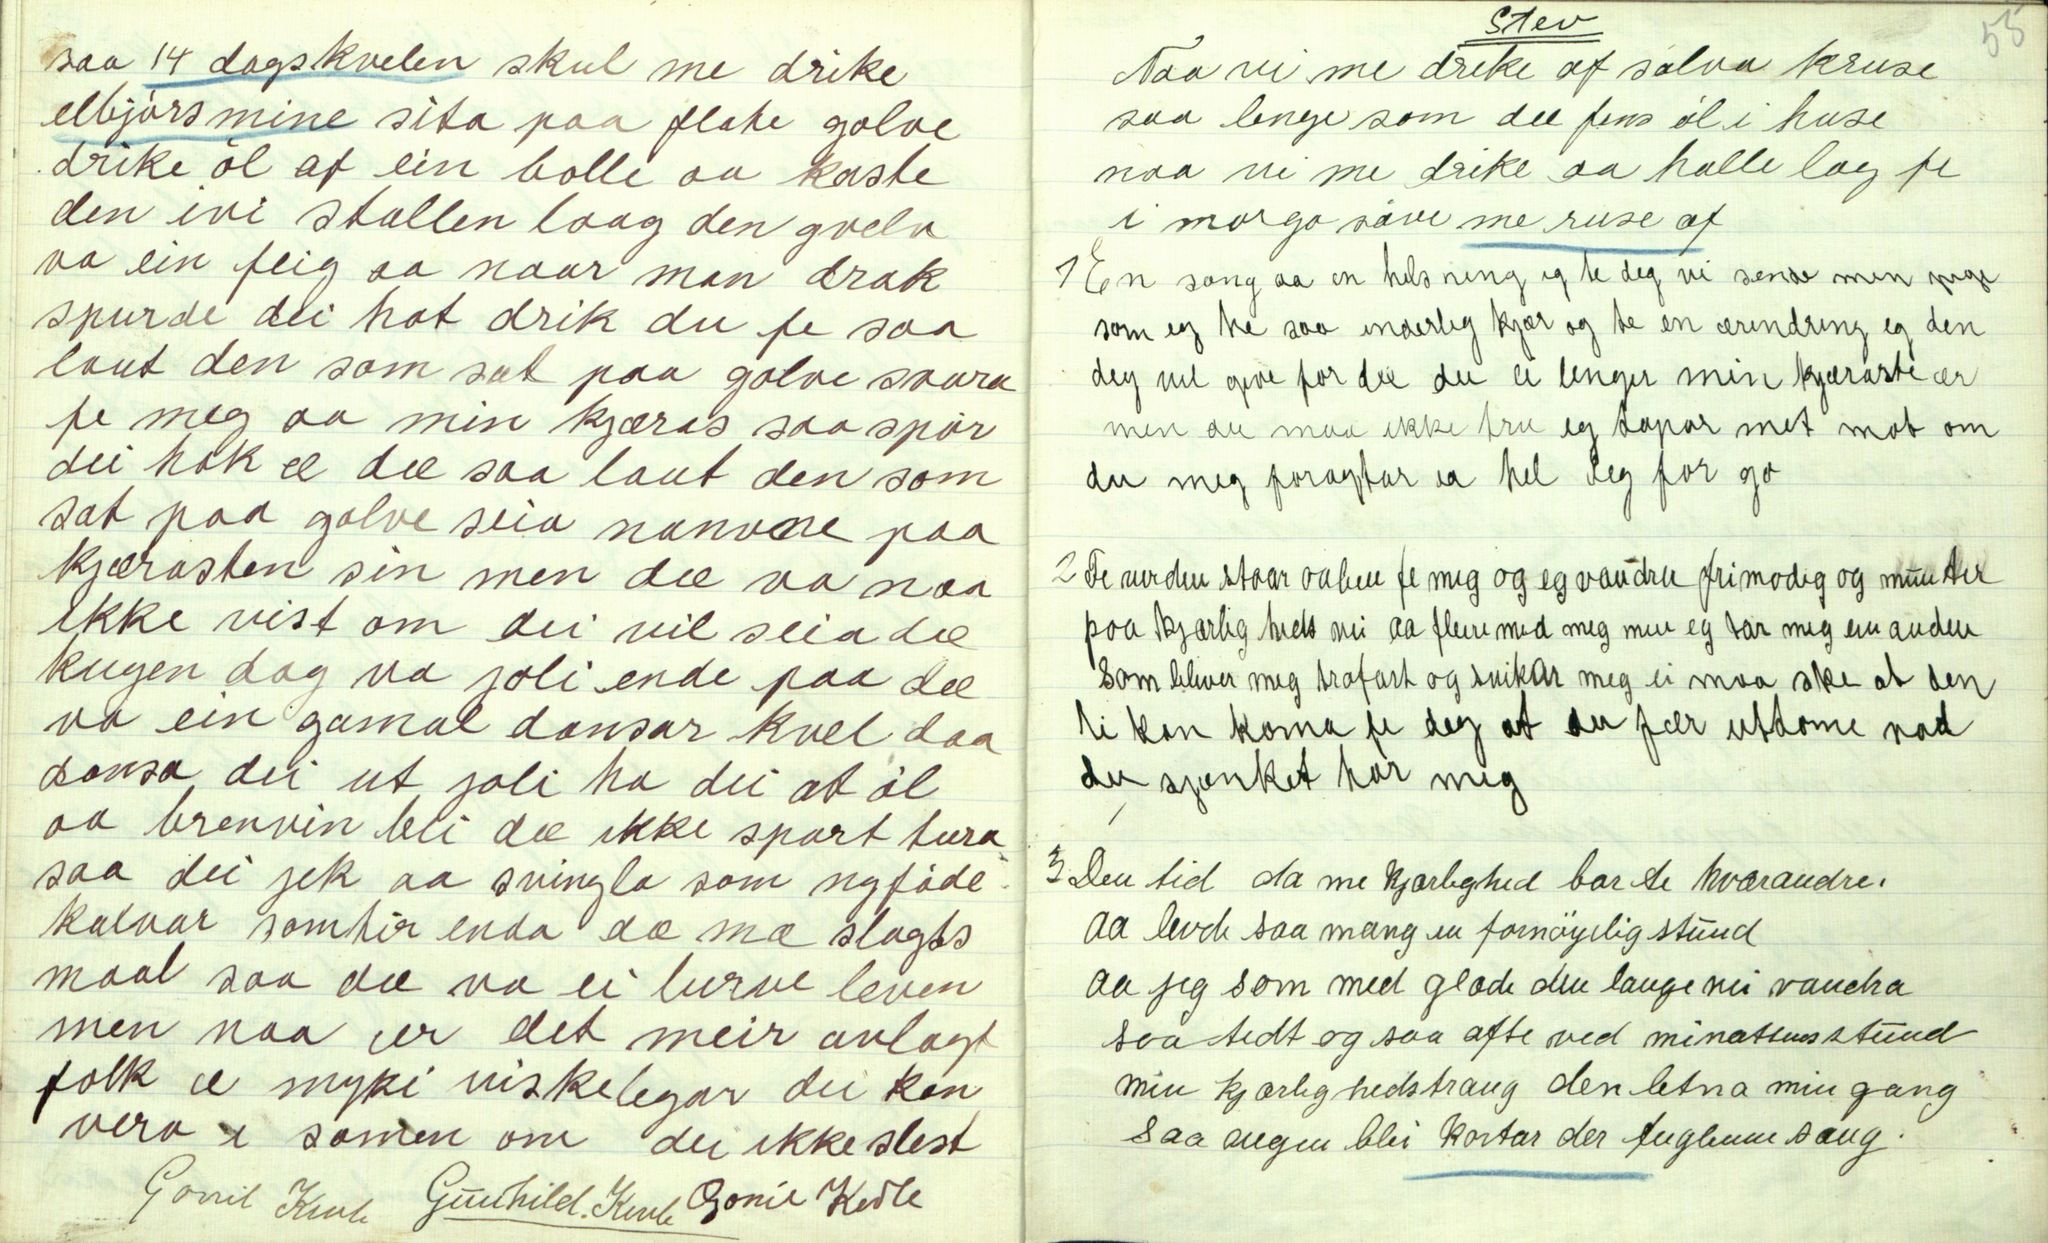 saa 14 dagskvelen skul me drike
elbjörsmine sita paa flate golve
drike öl af ein bolle aa kaste
den ivi stallen laag den gvelv
va ein feig aa naar man drak
spurde dei hot drik du fe saa
laut den som sat paa golve svara
fe meg aa min kjæras saa spör
dei hok æ dæ saa laut den som
sat paa golve seia nanvne paa
kjærasten sin men dæ va naa
ikke vist om dei vil seia dæ
kugen dag va joli ende paa dæ
va ein gamal dansar kvel daa
dansa dei ut joli ha dei at öl
aa brenvin blei dæ ikke spart tura
saa dei jek aa svingla som nyföde
kalvar somhir enda dæ mæ slagts
maal saa dæ va ei lurve leven
men naa er det meir avlagt
folk æ myki viskelegar dei kan
vera i samen om dei ikke slest
Gonil Kivle Gunhild. Kivle Gonil Kivle
55
Stev
Naa vi me drike af sölva kruse
saa lenge som dæ fins öl i huse
naa vi me drike aa halle lag fe
i morgo söve me ruse af
1 En sang aa en helsning eg te deg vi sende min pige
som eg he saa inderleg kjær og te en ærindring eg den
deg vil give for dæ du ei lenger min kjæraste ær
men du maa ikke tru eg tapar met mot om
du meg foragtar ea hel deg for go
2 Te verden staar aaben fe meg og eg vandre frimodig og munter
paa kjærlig heds vei aa flere med meg men eg tar meg en anden
som bliver meg trofast og svikar meg ei maa ske at den
ti kan koma fe deg at du fær utdome vad
du sjænket har meg
3 Den tid da me kjærlighed bar te hværandre.
aa levde saa mang en fornöyelig stund
aa jeg som med glæde den lange vei vandra
saa tidt og saa ofte ved minattens stund
min kjærlighedstrang den letna min gang
saa vegen blei kortar der fuglenne sang.